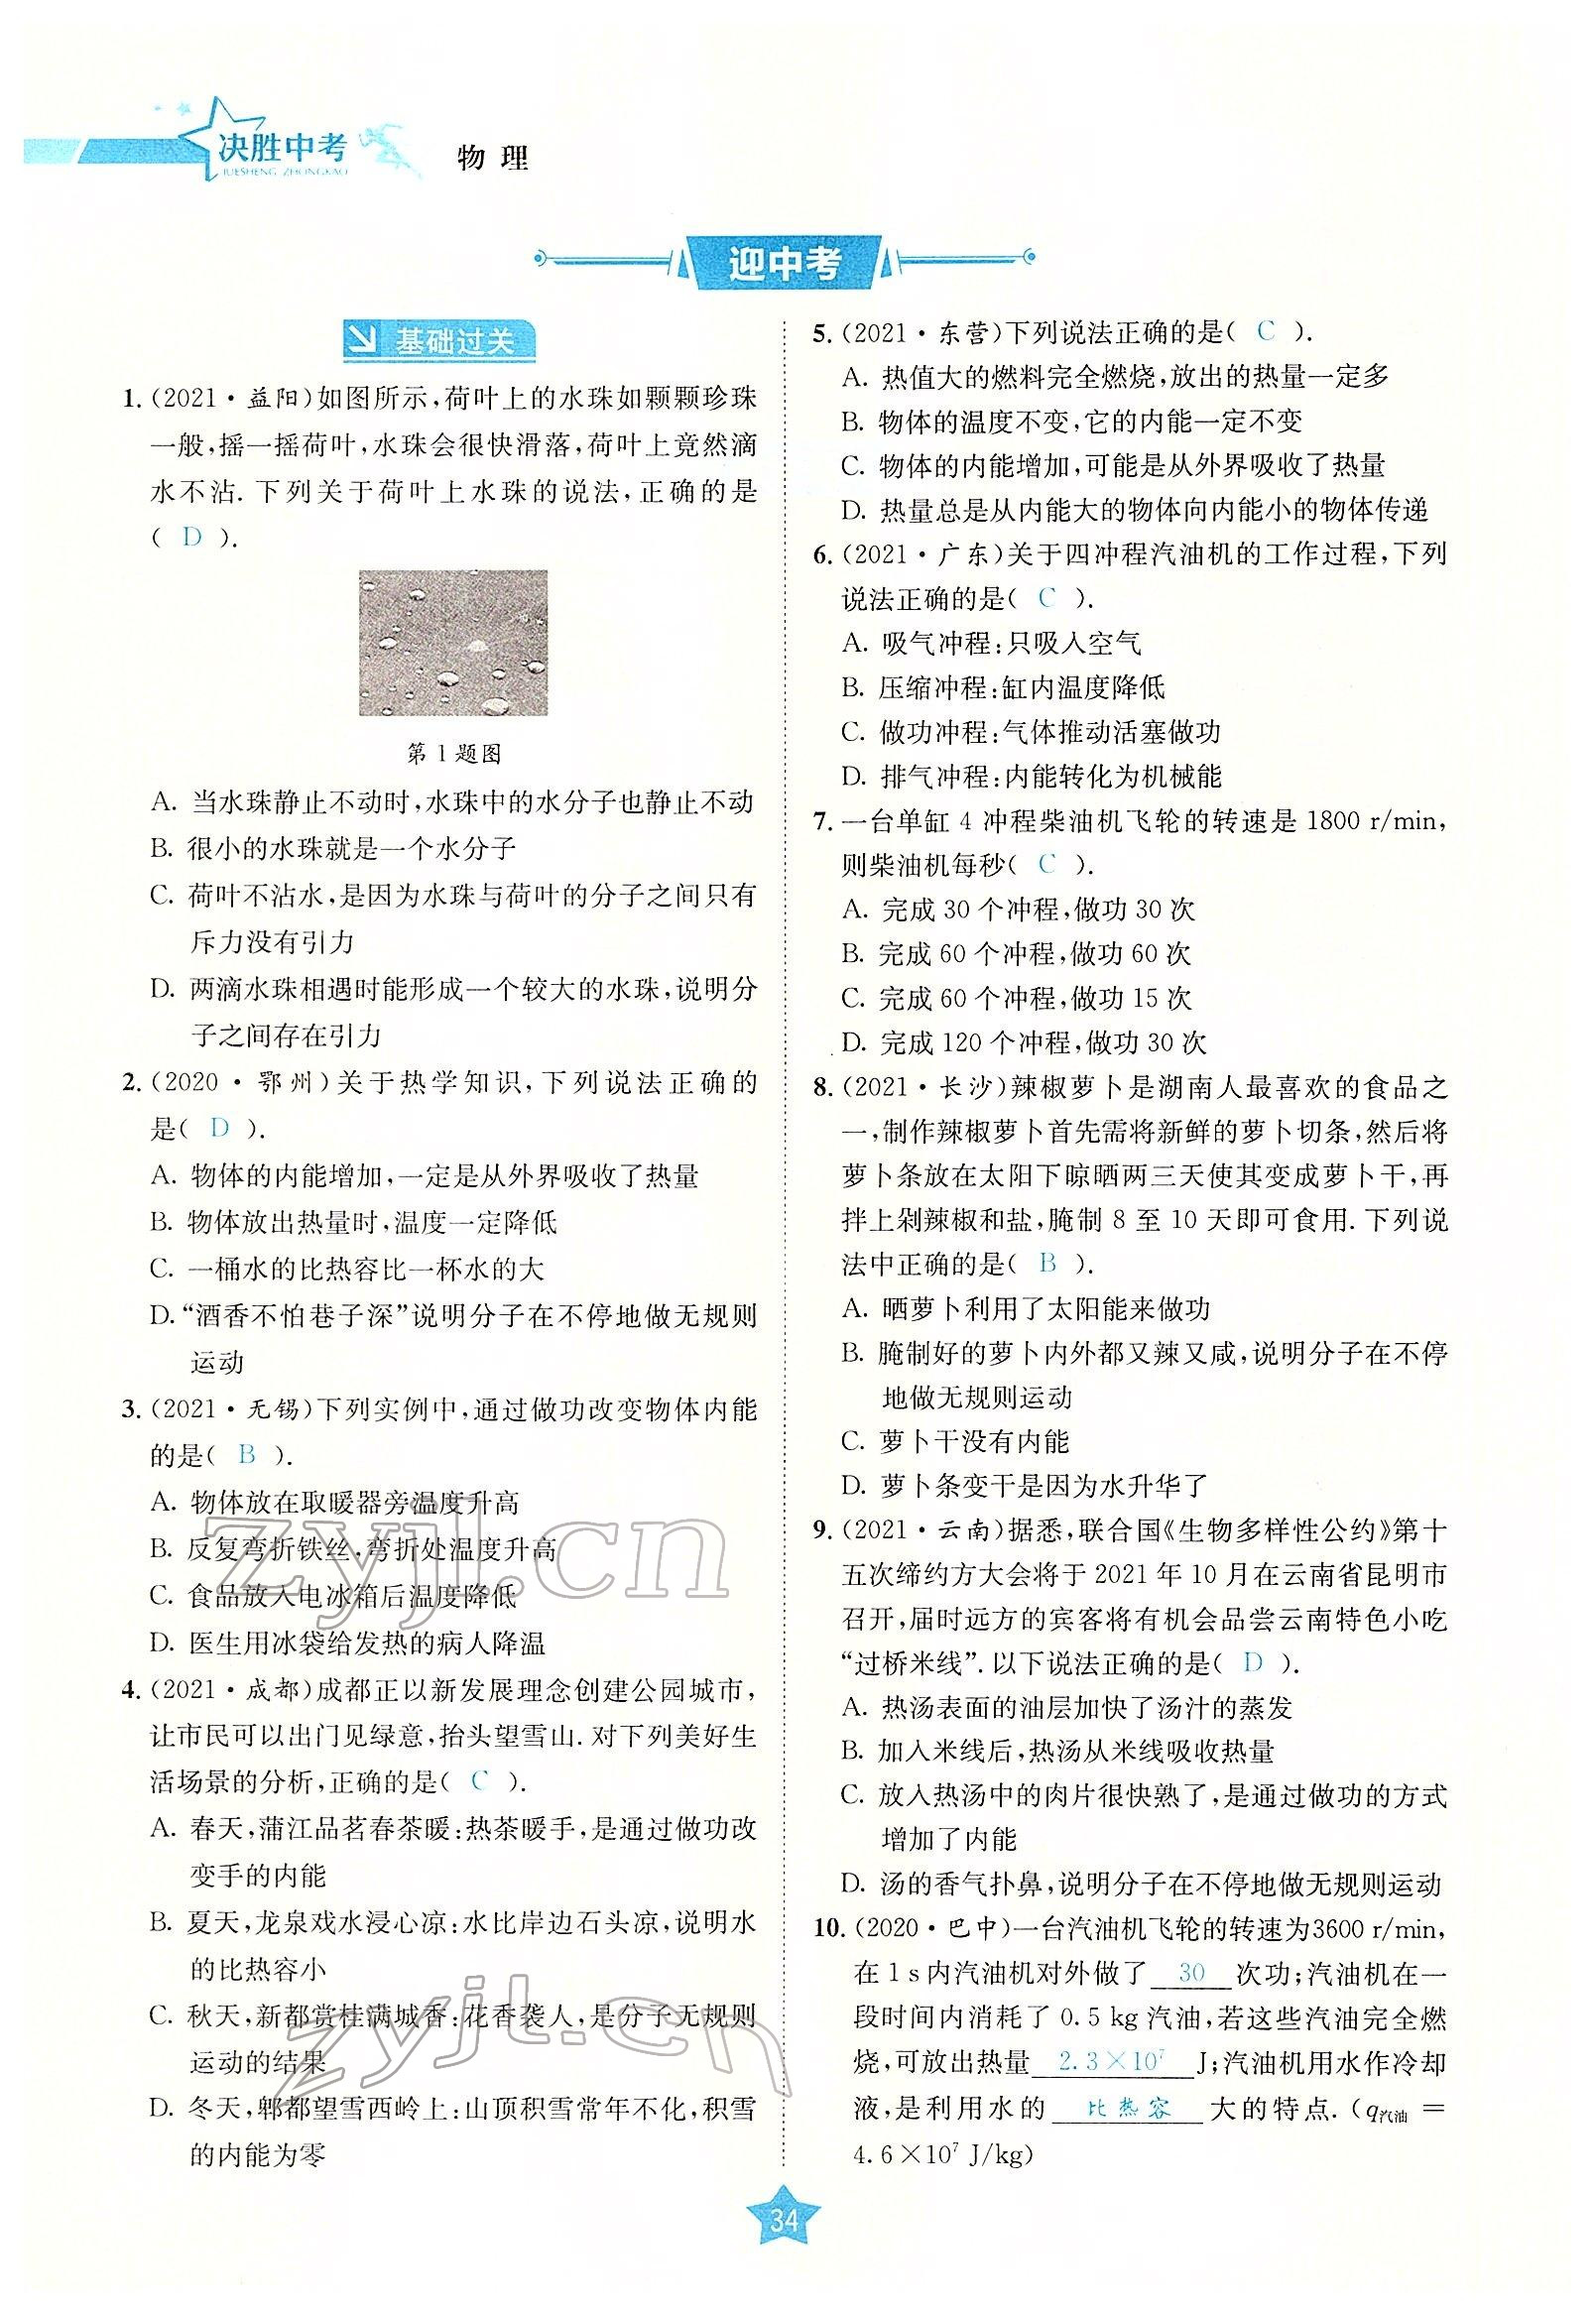 决胜中考
JUESHENG ZHONGKAO
物理
迎中考
基础过关
1. (2021·益阳)如图所示,荷叶上的水珠如颗颗珍珠
一般,摇一摇荷叶,水珠会很快滑落,荷叶上竟然滴
水不沾.下列关于荷叶上水珠的说法,正确的是
( D ).
第1题图
A. 当水珠静止不动时,水珠中的水分子也静止不动
B. 很小的水珠就是一个水分子
C. 荷叶不沾水,是因为水珠与荷叶的分子之间只有
斥力没有引力
D. 两滴水珠相遇时能形成一个较大的水珠,说明分
子之间存在引力
2. (2020·鄂州)关于热学知识,下列说法正确的
是( D ).
A. 物体的内能增加,一定是从外界吸收了热量
B. 物体放出热量时,温度一定降低
C. 一桶水的比热容比一杯水的大
D.“酒香不怕巷子深”说明分子在不停地做无规则
运动
3. (2021·无锡)下列实例中,通过做功改变物体内能
的是( B ).
A. 物体放在取暖器旁温度升高
B. 反复弯折铁丝,弯折处温度升高
C. 食品放入电冰箱后温度降低
D. 医生用冰袋给发热的病人降温
4. (2021·成都)成都正以新发展理念创建公园城市,
让市民可以出门见绿意,抬头望雪山.对下列美好生
活场景的分析,正确的是( C ).
A. 春天,蒲江品茗春茶暖:热茶暖手,是通过做功改
变手的内能
B. 夏天,龙泉戏水浸心凉:水比岸边石头凉,说明水
的比热容小
C. 秋天,新都赏桂满城香:花香袭人,是分子无规则
运动的结果
D. 冬天,郫都望雪西岭上:山顶积雪常年不化,积雪
的内能为零
5. (2021·东营)下列说法正确的是( C ).
A. 热值大的燃料完全燃烧,放出的热量一定多
B. 物体的温度不变,它的内能一定不变
C. 物体的内能增加,可能是从外界吸收了热量
D. 热量总是从内能大的物体向内能小的物体传递
6. (2021·广东)关于四冲程汽油机的工作过程,下列
说法正确的是( C ).
A. 吸气冲程:只吸入空气
B. 压缩冲程:缸内温度降低
C. 做功冲程:气体推动活塞做功
D. 排气冲程:内能转化为机械能
7. 一台单缸 4 冲程柴油机飞轮的转速是 1800 r/min,
则柴油机每秒( C ).
A. 完成 30 个冲程,做功 30 次
B. 完成 60 个冲程,做功 60 次
C. 完成 60 个冲程,做功 15 次
D. 完成 120 个冲程,做功 30 次
8. (2021·长沙)辣椒萝卜是湖南人最喜欢的食品之
一,制作辣椒萝卜首先需将新鲜的萝卜切条,然后将
萝卜条放在太阳下晾晒两三天使其变成萝卜干,再
拌上剁辣椒和盐,腌制 8 至 10 天即可食用.下列说
法中正确的是( B ).
A. 晒萝卜利用了太阳能来做功
B. 腌制好的萝卜内外都又辣又咸,说明分子在不停
地做无规则运动
C. 萝卜干没有内能
D. 萝卜条变干是因为水升华了
9. (2021·云南)据悉,联合国《生物多样性公约》第十
五次缔约方大会将于 2021 年 10 月在云南省昆明市
召开,届时远方的宾客将有机会品尝云南特色小吃
“过桥米线”.以下说法正确的是( D ).
A. 热汤表面的油层加快了汤汁的蒸发
B. 加入米线后,热汤从米线吸收热量
C. 放入热汤中的肉片很快熟了,是通过做功的方式
增加了内能
D. 汤的香气扑鼻,说明分子在不停地做无规则运动
10. (2020·巴中)一台汽油机飞轮的转速为3600 r/min,
在 1 s 内汽油机对外做了 30 次功;汽油机在一
段时间内消耗了 0.5 kg 汽油,若这些汽油完全燃
烧,可放出热量 2.3×10⁷ J;汽油机用水作冷却
液,是利用水的 比热容 大的特点.(q汽油 =
4.6×10⁷ J/kg)
34
zyjl.cn
zyjl.cn